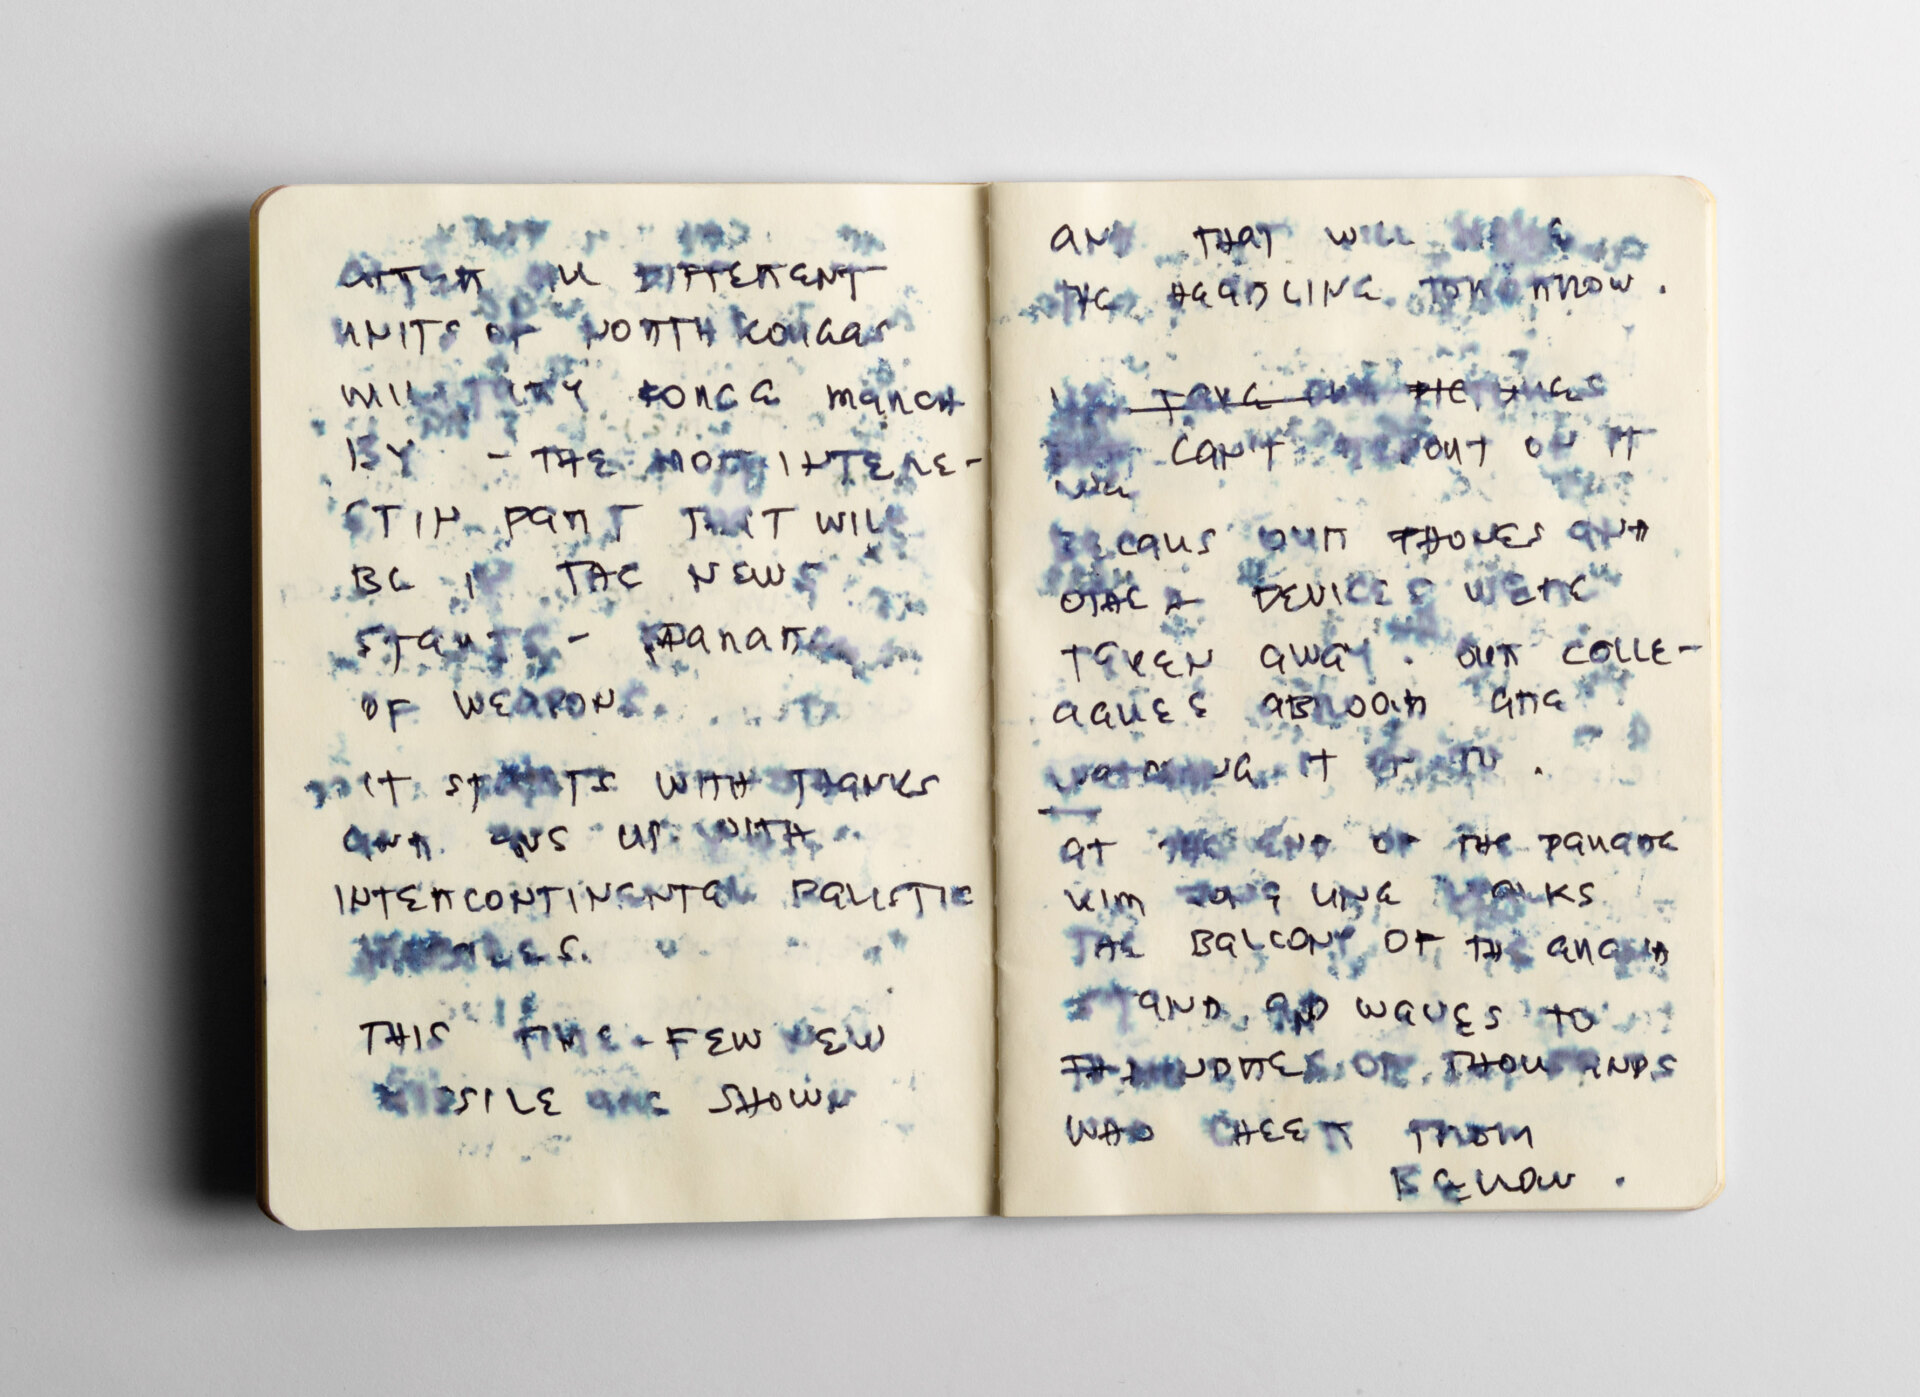 AFTER ALL DIFFERENT
UNITS OF NORTH KOREAS
MILITARY FORCE MARCH
BY - THE MOST INTERE-
STIN PART THAT WILL
BE IN THE NEWS
STARTS - PARADE
OF WEAPONS.
IT STARTS WITH THANKS
AND ANS UP WITH
INTERCONTINENTAL BALISTIC
MISSILES.
THIS TIME - FEW NEW
MISSILE ARE SHOWN
AND THAT WILL MAKE
THE HEADLINE TOMORROW.
WE TAKE OUR PICTURES
CAN'T OUT ON IT
BECAUS OUR PHONES AND
OTHER DEVICES WERE
TAKEN AWAY. OUR COLLE-
AGUES ABROAD ARE
WATCHING IT ON TV.
AT THE END OF THE PARADE
KIM UNE WALKS
THE BALCONY OF THE GRAND
STAND AND WAVES TO
THE HUNDREDS OF THOUSANDS
WHO CHEER FROM
BELOW.